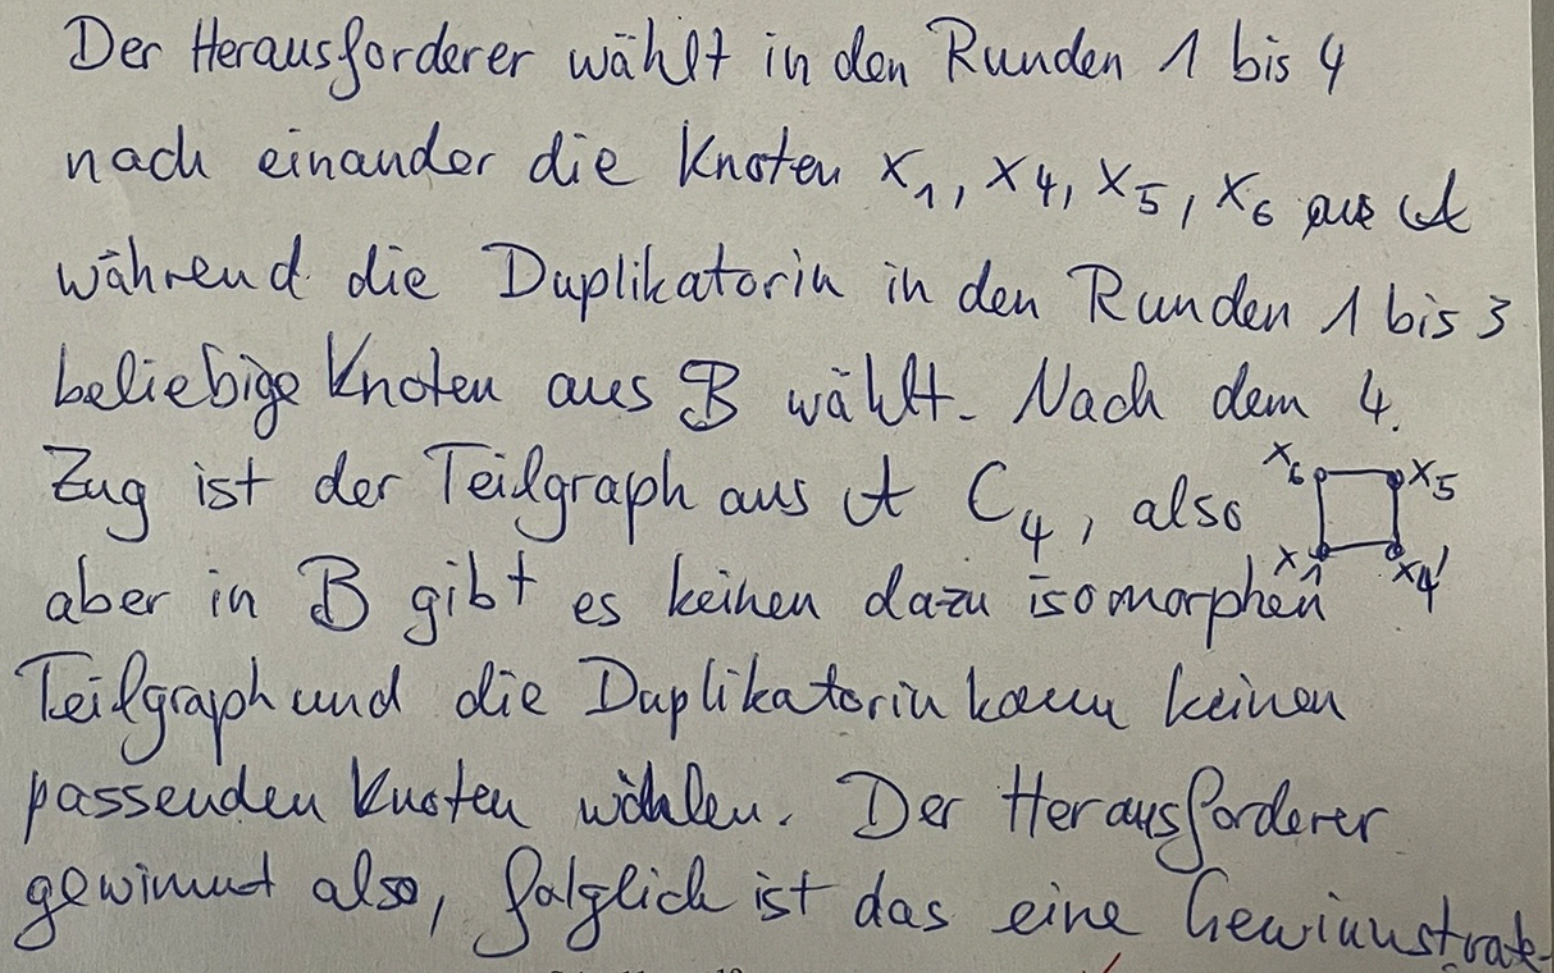 Der Herausforderer wählt in den Runden 1 bis 4
nach einander die Knoten x₁, x₄, x₅, x₆ aus 𝒜
während die Duplikatorin in den Runden 1 bis 3
beliebige Knoten aus ℬ wählt. Nach dem 4.
Zug ist der Teilgraph aus 𝒜 C₄, also
x₆ x₅
x₁ x₄,
aber in ℬ gibt es keinen dazu isomorphen
Teilgraph und die Duplikatorin kann keinen
passenden Knoten wählen. Der Herausforderer
gewinnt also, folglich ist das eine Gewinnstrate-